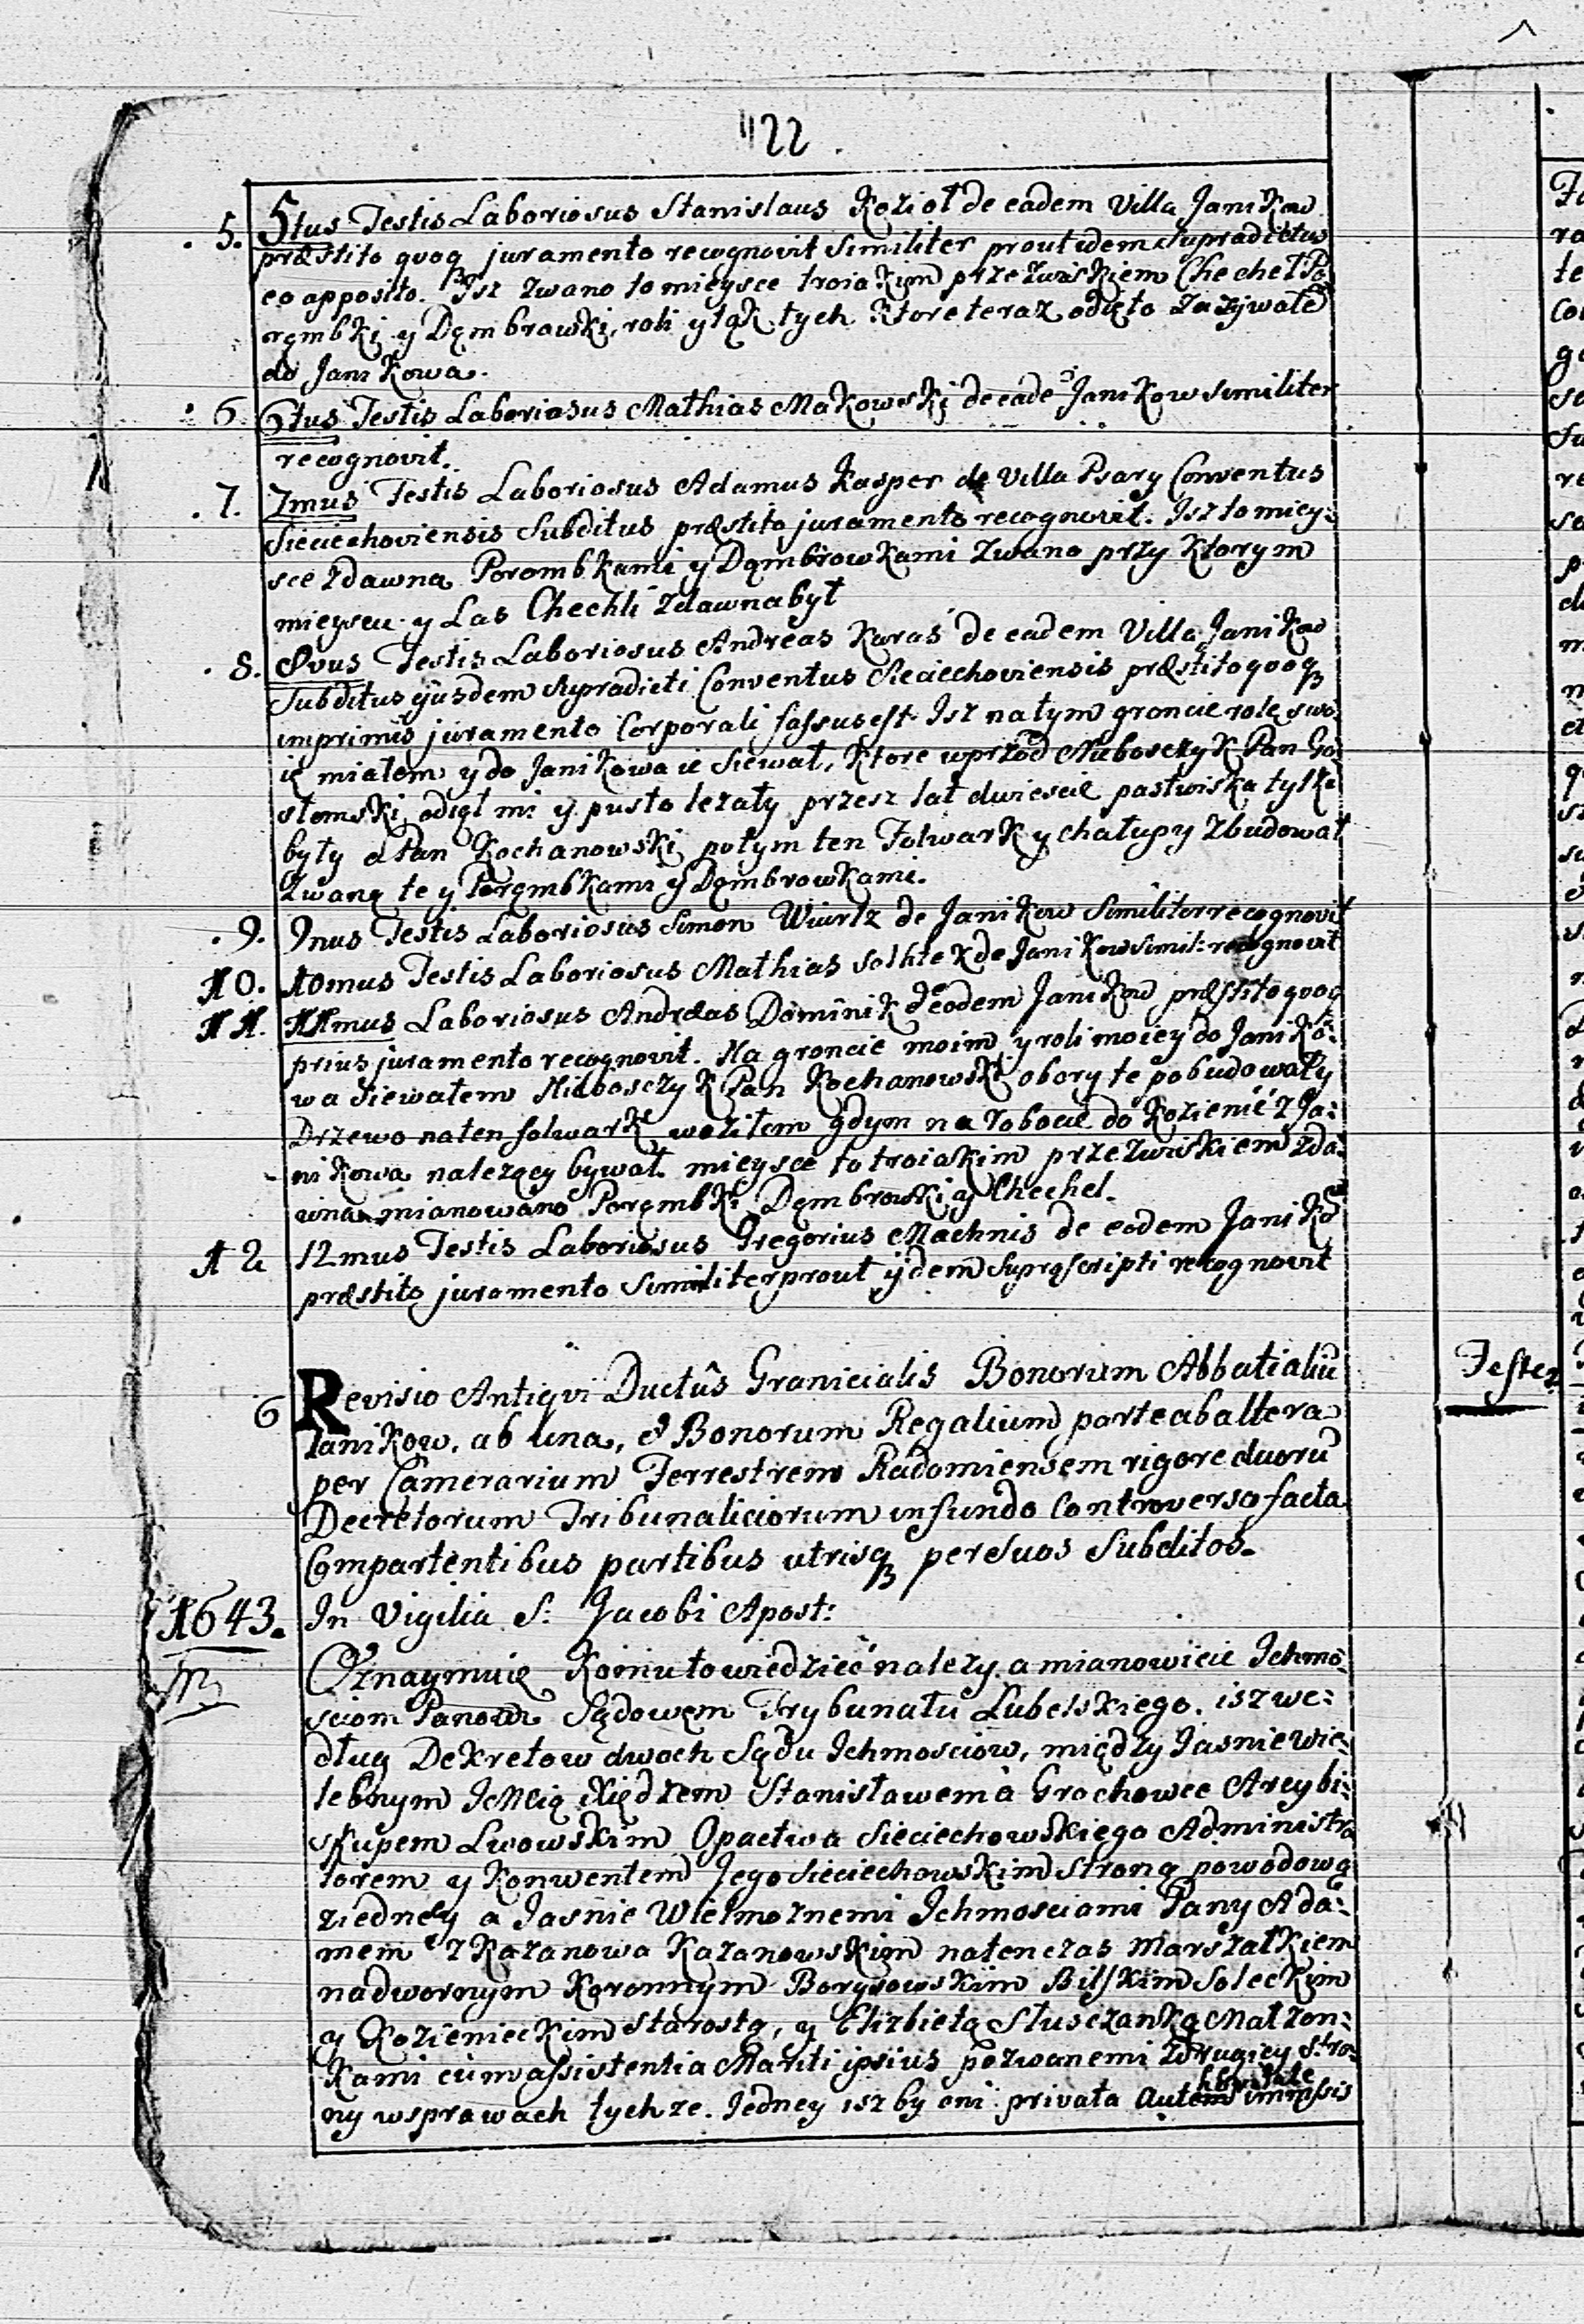 122.
5. 5tus Testis Laboriosus Stanislaus Kozioł de eadem Villa Janikow
præstito quoq juramento recognovit Similiter prout idem Supradictus
eo apposito. Isz zwano to mieysce troiakim przezwiskiem Checheł Po
ręmbki y Dęmbrowki, roli y łąk tych ktore teraz odięto zazywałe
do Janikowa.
6. 6tus Testis Laboriosus Mathias Makowski de eade Janikow similiter
recognovit.
7. 7mus Testis Laboriosus Adamus Kasper de Villa Psary Conventus
Sieciechoviensis Subditus præstito juramento recognovit. Isz to miey:
sce zdawna Porombkami y Dąmbrowkami zwano przy ktorym
mieyscu y Las Chechli zdawna był
8. 8vus Testis Laboriosus Andreas Karaś de eadem Villa Janikow
Subditus ejusdem Supradicti Conventus Sieciechoviensis præstito quoq
imprimis juramento Corporali fassus est. Isz na tym groncie rolę swo
ię miałem y do Janikowa ie Siewał, ktore wprzod Nieboszczyk Pan Go
stomski odiął mi y pusto lezały przesz lat dwiescie pastwiska tylko
były a Pan Kochanowski potym ten Folwark y chałupy zbudował
zwano te y Poręmbkami y Dęmbrowkami.
.9. 9nus Testis Laboriosus Simon Wiurtz de Janikow Similiter recognovit
10. 10mus Testis Laboriosus Mathias Sołtek de Janikow simil: recognovit
11. 11mus Laboriosus Andreas Dominik de eodem Janikow præstito quoq
prius juramento recognovit. Na groncie moim y roli moiey do Janiko:
wa Siewałem Nieboszczyk Pan Kochanowski obory te pobudowały
Drzewo na ten folwark woziłem gdym na robocie do Kozienic z Ja:
nikowa nalezący bywał. mieysce to troiakim przezwiskiem zda:
wna mianowano Poręmbki, Dęmbrowki y Chechel.
12 12mus Testis Laboriosus Gregorius Machnis de eodem Janikow
præstito juramento Similiter prout ijdem Suprascripti recognovit
6 Revisio Antiqvi Ductûs Granicialis Bonorum Abbatialiu
Janikow, ab una, & Bonorum Regalium parte ab altera
per Camerarium Terrestrem Radomiensem rigore duoru
Decretorum Tribunaliciorum in fundo Controverso facta
Compartentibus partibus utrisq per Suos Subditos.
1643. In Vigilia S: Jacobi Apost:
Oznaymuię Komu to wiedzieć nalezy. a mianowicie Ichmo:
sciom Panom Sądowęm Trybunału Lubelskiego. isz we:
dług Dekretow dwoch Sądu Ichmosciow, między Jasnie Wie:
lebnym JeMcią Xiędzem Stanisławem à Grochowce Arcybi:
skupem Lwowskim Opactwa Sieciechowskiego Administra
torem y Konwentem Jego Sieciechowskim Stroną powodową
ziedney a Jasnie Wielmoznemi Ichmosciami Pany Ada:
mem z Kazanowa Kazanowskim natenczas Marszałkiem
nadwornym Koronnym Borysowskim Bilskim Soleckim
y Kozienieckim Starostą, y Elizbietą Słuszczanką Małzon:
kami cum assistentia Mariti ipsius pozwanemi zdrugiey stro:
ny wsprawach tychze. Jedney isz by oni privata immissis
Testes